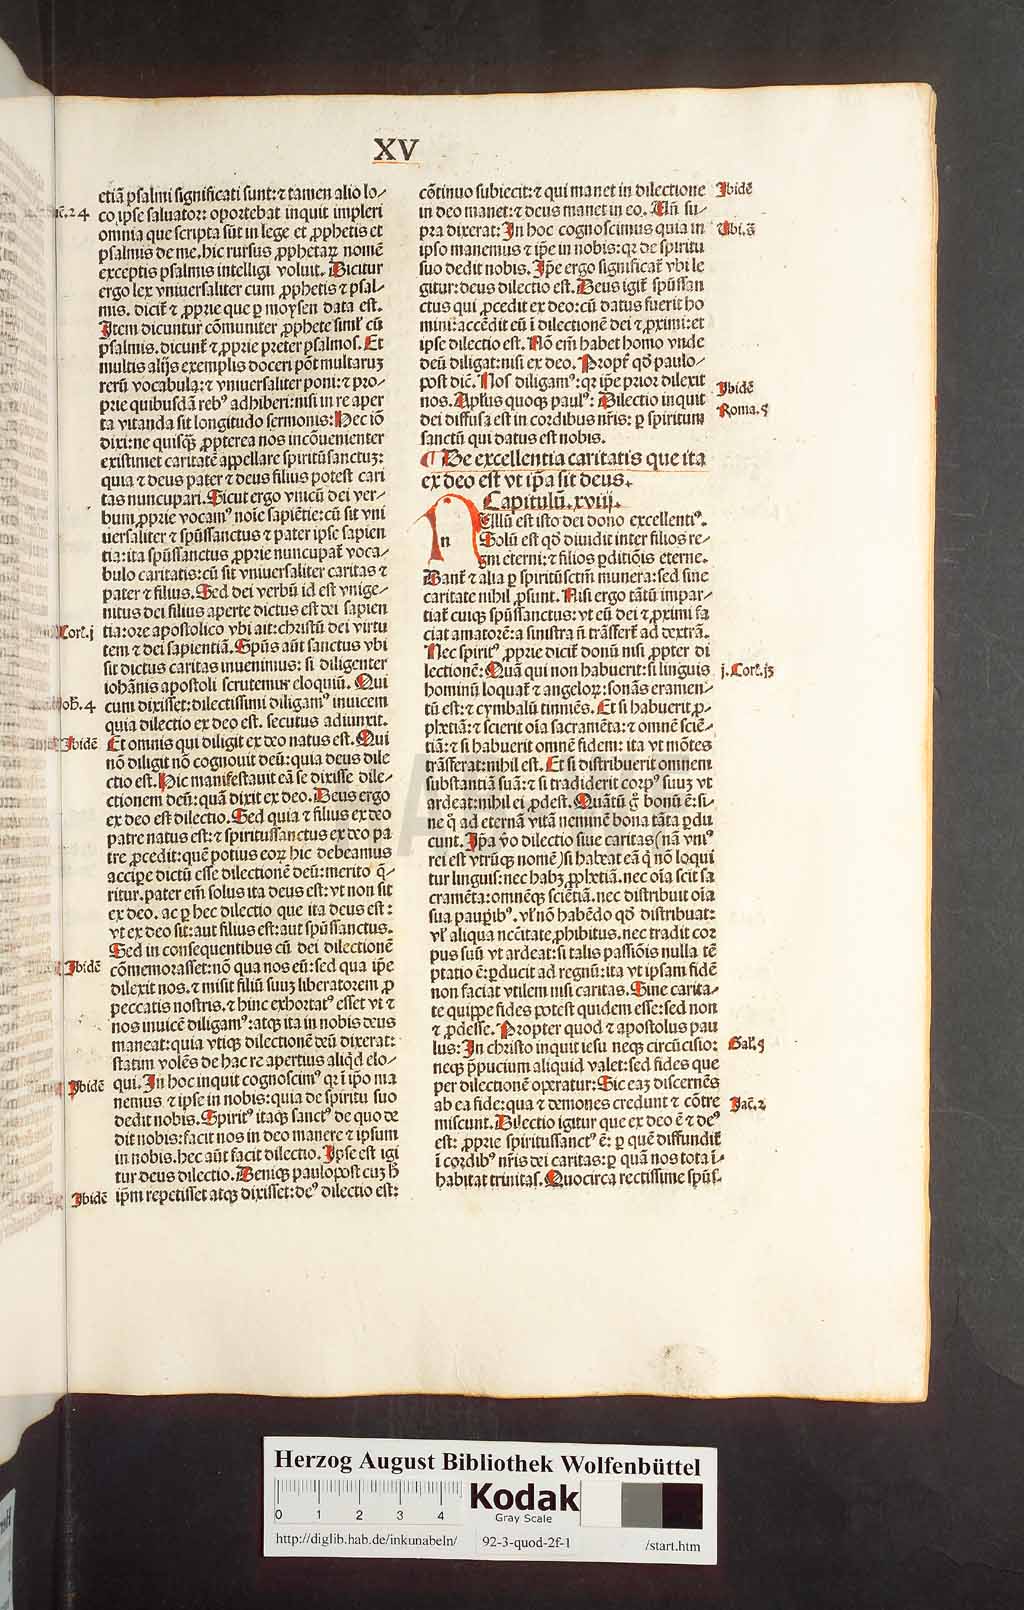 XV
etiã psalmi significati sunt: ⁊ tamen alio lo⸗
co ipse saluator: oportebat inquit impleri
omnia que scripta sũt in lege et ꝓphetis et
psalmis de me. hic rursus ꝓphetaꝝ nomẽ
exceptis psalmis intelligi voluit. Dicitur
ergo lex vniuersaliter cum ꝓphetis ⁊ psal⸗
mis. dicit̃ ⁊ ꝓprie que ꝑ moysen data est.
Item dicuntur cõmuniter ꝓphete simĩ cũ
psalmis. dicunt̃ ⁊ ꝓprie preter psalmos. Et
multis alijs exemplis doceri põt multaruꝫ
rerũ vocabula: ⁊ vniuersaliter poni: ⁊ pro⸗
prie quibusdã rebꝰ adhiberi: nisi in re aper
ta vitanda sit longitudo sermonis: Hec iõ
dixi: ne quisꝙ ꝓpterea nos incõuenienter
existimet caritatẽ appellare spiritũsanctuꝫ:
quia ⁊ deus pater ⁊ deus filius potest cari
tas nuncupari. Sicut ergo vnicũ dei ver⸗
bum ꝓprie vocamꝰ noĩe sapiẽtie: cũ sit vni
uersaliter ⁊ spũssanctus ⁊ pater ipse sapien
tia: ita spũssanctus ꝓprie nuncupat̃ voca⸗
bulo caritatis: cũ sit vniuersaliter caritas ⁊
pater ⁊ filius. Sed dei verbũ id est vnige⸗
nitus dei filius aperte dictus est dei sapien
tia: ore apostolico vbi ait: christũ dei virtu
tem ⁊ dei sapientiã. Spũs aũt sanctus vbi
sit dictus caritas inuenimus: si diligenter
iohãnis apostoli scrutemur eloquiũ. Qui
cum dixisset: dilectissimi diligamꝰ inuicem
quia dilectio ex deo est. secutus adiunxit.
Et omnis qui diligit ex deo natus est. Qui
nõ diligit nõ cognouit deũ: quia deus dile
ctio est. Hic manifestauit eã se dixisse dile⸗
ctionem deũ: quã dixit ex deo. Deus ergo
ex deo est dilectio. Sed quia ⁊ filius ex deo
patre natus est: ⁊ spiritussanctus ex deo pa
tre ꝓcedit: quẽ potius eoꝝ hic debeamus
accipe dictũ esse dilectionẽ deũ: merito q̃⸗
ritur. pater em̃ solus ita deus est: vt non sit
ex deo. ac ꝑ hec dilectio que ita deus est:
vt ex deo sit: aut filius est: aut spũssanctus.
Sed in consequentibus cũ dei dilectionẽ
cõmemorasset: nõ qua nos eũ: sed qua ip̃e
dilexit nos. ⁊ misit filiũ suuꝫ liberatorem ꝓ
peccatis nostris. ⁊ hinc exhortatꝰ esset vt ⁊
nos inuicẽ diligamꝰ: atqꝫ ita in nobis deus
maneat: quia vtiqꝫ dilectionẽ deũ dixerat:
statim volẽs de hac re apertius aliqd̃ elo⸗
qui. In hoc inquit cognoscimꝰ qꝛ ĩ ip̃o ma
nemus ⁊ ipse in nobis: quia de spiritu suo
dedit nobis. Spiritꝰ itaqꝫ sanctꝰ de quo de
dit nobis: facit nos in deo manere ⁊ ipsum
in nobis. hec aũt facit dilectio. Ipse est igi
tur deus dilectio. Deniqꝫ paulopost cuꝫ h̃
ip̃m repetisset atqꝫ dixisset: deꝰ dilectio est:
24
Cor̃. j
Joh̃. 4
Ibidẽ
Ibidẽ
Ibidẽ
Ibidẽ
cõtinuo subiecit: ⁊ qui manet in dilectione
in deo manet: ⁊ deus manet in eo. Uñ su⸗
pra dixerat: In hoc cognoscimus quia in
ipso manemus ⁊ ip̃e in nobis: qꝛ de spiritu
suo dedit nobis. Ip̃e ergo significat̃ vbi le
gitur: deus dilectio est. Deus igit̃ spũssan
ctus qui ꝓcedit ex deo: cũ datus fuerit ho
mini: accẽdit eũ ĩ dilectionẽ dei ⁊ ꝓximi: et
ipse dilectio est. Nõ em̃ habet homo vnde
deũ diligat: nisi ex deo. Propt̃ qď paulo⸗
post dič. Nos diligamꝰ: qꝛ ip̃e prior dilexit
nos. Aplus quoqꝫ paulꝰ: Dilectio inquit
dei diffusa est in cordibus nr̃is: ꝑ spiritum
sanctũ qui datus est nobis.
¶ De excellentia caritatis que ita
ex deo est vt ip̃a sit deus.
Capitulũ. xviij.
In
Ullũ est isto dei dono excellentiꝰ.
Solũ est qď diuidit inter filios re⸗
gni eterni: ⁊ filios ꝑditiõis eterne.
Dant̃ ⁊ alia ꝑ spiritũsctm̃ munera: sed sine
caritate nihil ꝓsunt. Nisi ergo tãtũ impar⸗
tiat̃ cuiqꝫ spũssanctus: vt eũ dei ⁊ ꝓximi fa
ciat amatorẽ: a sinistra ñ trãsfert̃ ad dextrã.
Nec spiritꝰ ꝓprie dicit̃ donũ nisi ꝓpter di
lectionẽ: Quã qui non habuerit: si linguis
hominũ loquat̃ ⁊ angeloꝝ: sonãs eramen⸗
tũ est: ⁊ cymbalũ tinniẽs. Et si habuerit ꝓ⸗
phetiã: ⁊ scierit oĩa sacramẽta: ⁊ omnẽ sciẽ⸗
tiã: ⁊ si habuerit omnẽ fidem: ita vt mõtes
trãsferat: nihil est. Et si distribuerit omnem
substantiã suã: ⁊ si tradiderit corpꝰ suuꝫ vt
ardeat: nihil ei ꝓdest. Quãtũ g̊ bonũ ẽ: si⸗
ne q̊ ad eternã vitã neminẽ bona tãta ꝑdu
cunt. Ip̃a ṽo dilectio siue caritas (nã vniꝰ
rei est vtrũqꝫ nomẽ) si habeat eã q̊ nõ loqui
tur linguis: nec habꝫ ꝓphetiã. nec oĩa scit sa
cramẽta: omnẽqꝫ sciẽtiã. nec distribuit oĩa
sua pauꝑibꝰ. vl̃ nõ habẽdo qď distribuat:
vl̃ aliqua nc̃citate ꝓhibitus. nec tradit cor
pus suũ vt ardeat: si talis passiõis nulla tẽ
ptatio ẽ: ꝑducit ad regnũ: ita vt ipsam fidẽ
non faciat vtilem nisi caritas. Sine carita⸗
te quippe fides potest quidem esse: sed non
⁊ ꝓdesse. Propter quod ⁊ apostolus pau
lus: In christo inquit iesu neqꝫ circũcisio:
neqꝫ p̃pucium aliquid valet: sed fides que
per dilectionẽ operatur: Sic eaꝫ discernẽs
ab ea fide: qua ⁊ demones credunt ⁊ cõtre
miscunt. Dilectio igitur que ex deo ẽ ⁊ deꝰ
est: ꝓprie spiritussanctꝰ ẽ: ꝑ quẽ diffundit̃
ĩ cordibꝰ nr̃is dei caritas: ꝑ quã nos tota ĩ⸗
habitat trinitas. Quocirca rectissime spũs.
Ibidẽ
Ubi. s̃
Ibidẽ
Roma. 5
j. Cor̃. j3
Gal̃. 5
Jac̃. 2
Herzog August Bibliothek Wolfenbüttel
0 1 2 3 4
Kodak
Gray Scale
http://diglib.hab.de/inkunabeln/ 92-3-quod-2f-1 /start.htm